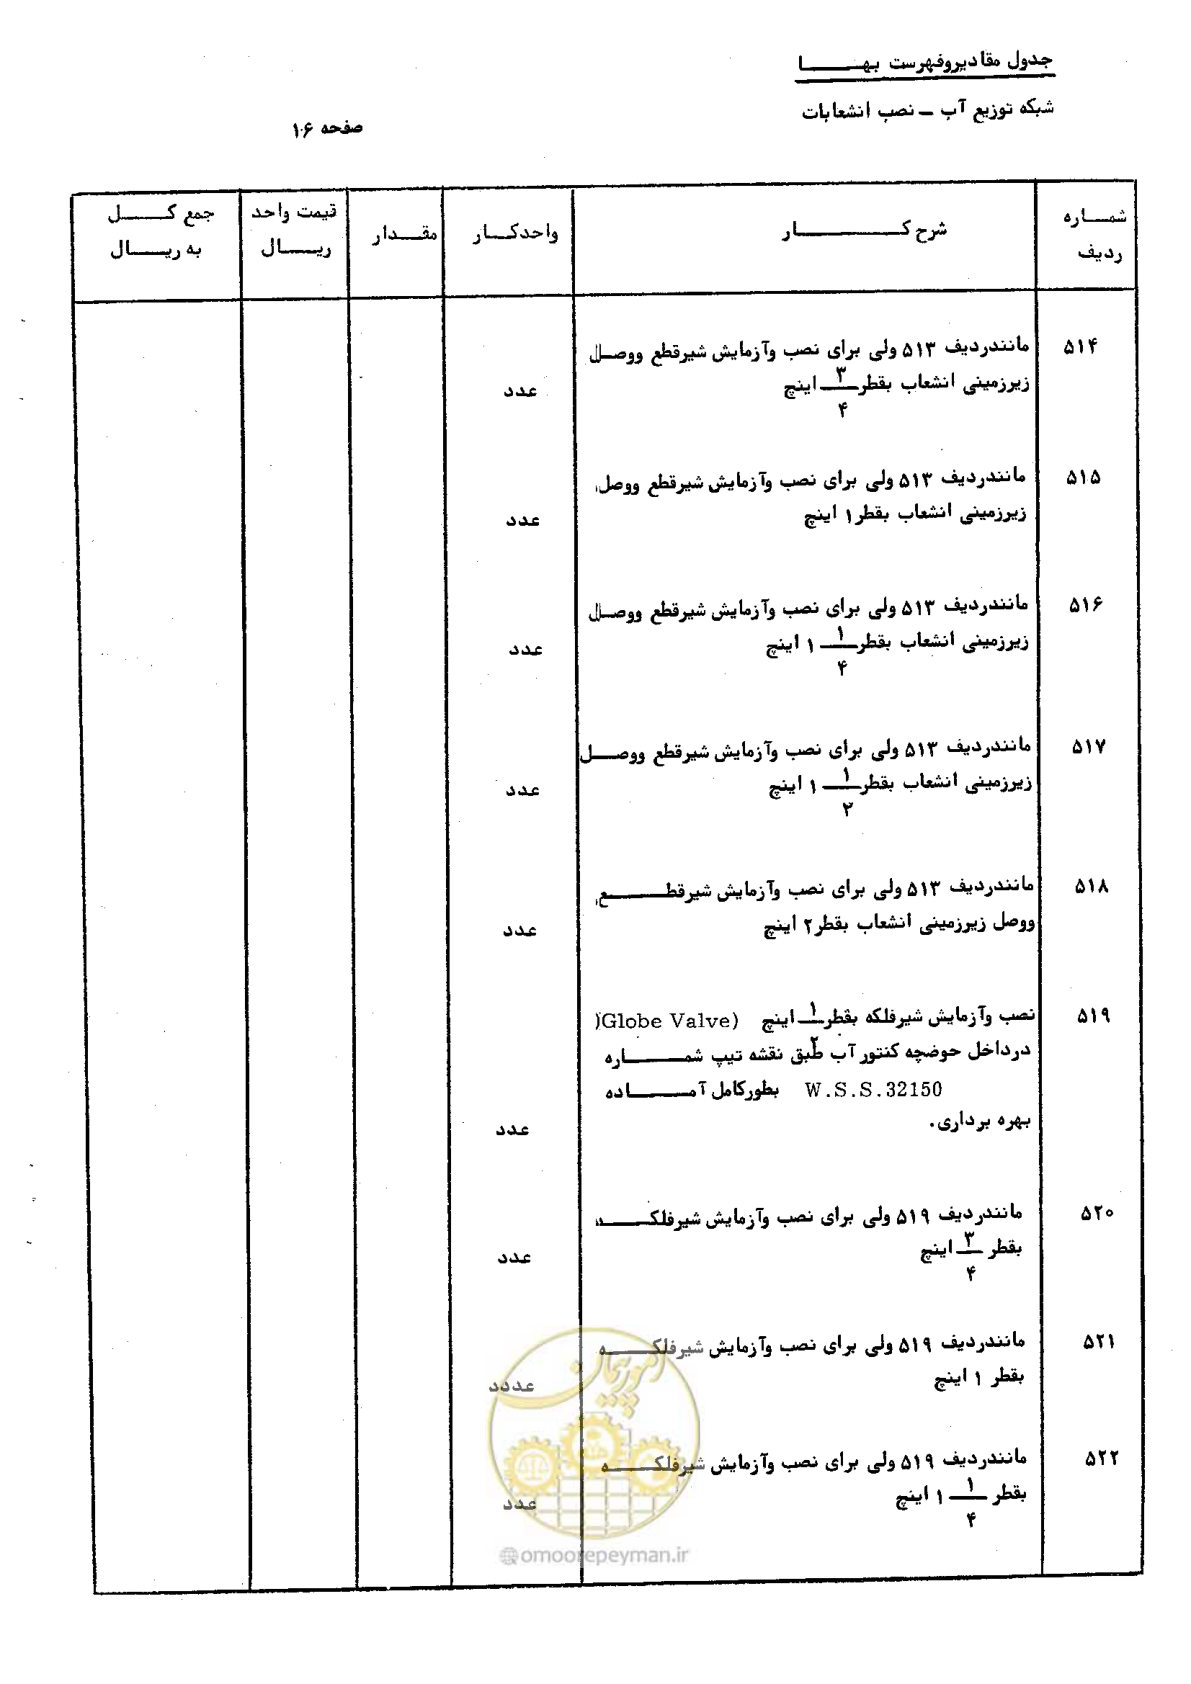 جدول مقادیر و فهرست بهـــــا
شبکه توزیع آب ــ نصب انشعابات
صفحه ۱۰۶
شمـــاره ردیف
شرح کـــــــار
واحد کـــار
مقـــدار
قیمت واحد ریـــال
جمع کــــل به ریـــال
۵۱۴
مانند ردیف ۵۱۳ ولی برای نصب و آزمایش شیر قطع و وصـل
زیرزمینی انشعاب بقطر ۳/۴ اینچ
عدد
۵۱۵
مانند ردیف ۵۱۳ ولی برای نصب و آزمایش شیر قطع و وصل
زیرزمینی انشعاب بقطر ۱ اینچ
عدد
۵۱۶
مانند ردیف ۵۱۳ ولی برای نصب و آزمایش شیر قطع و وصـل
زیرزمینی انشعاب بقطر ۱ ۱/۴ اینچ
عدد
۵۱۷
مانند ردیف ۵۱۳ ولی برای نصب و آزمایش شیر قطع و وصــل
زیرزمینی انشعاب بقطر ۱ ۱/۲ اینچ
عدد
۵۱۸
مانند ردیف ۵۱۳ ولی برای نصب و آزمایش شیر قطـــــع
و وصل زیرزمینی انشعاب بقطر ۲ اینچ
عدد
۵۱۹
نصب و آزمایش شیر فلکه بقطر ۱/۲ اینچ (Globe Valve)
در داخل حوضچه کنتور آب طبق نقشه تیپ شمـــــاره
W.S.S.32150 بطور کامل آمـــــاده
بهره برداری.
عدد
۵۲۰
مانند ردیف ۵۱۹ ولی برای نصب و آزمایش شیر فلکـــــه
بقطر ۳/۴ اینچ
عدد
۵۲۱
مانند ردیف ۵۱۹ ولی برای نصب و آزمایش شیر فلکـــــه
بقطر ۱ اینچ
عددد
۵۲۲
مانند ردیف ۵۱۹ ولی برای نصب و آزمایش شیر فلکـــــه
بقطر ۱ ۱/۴ اینچ
عدد
امور پیمان
omoorepeyman.ir